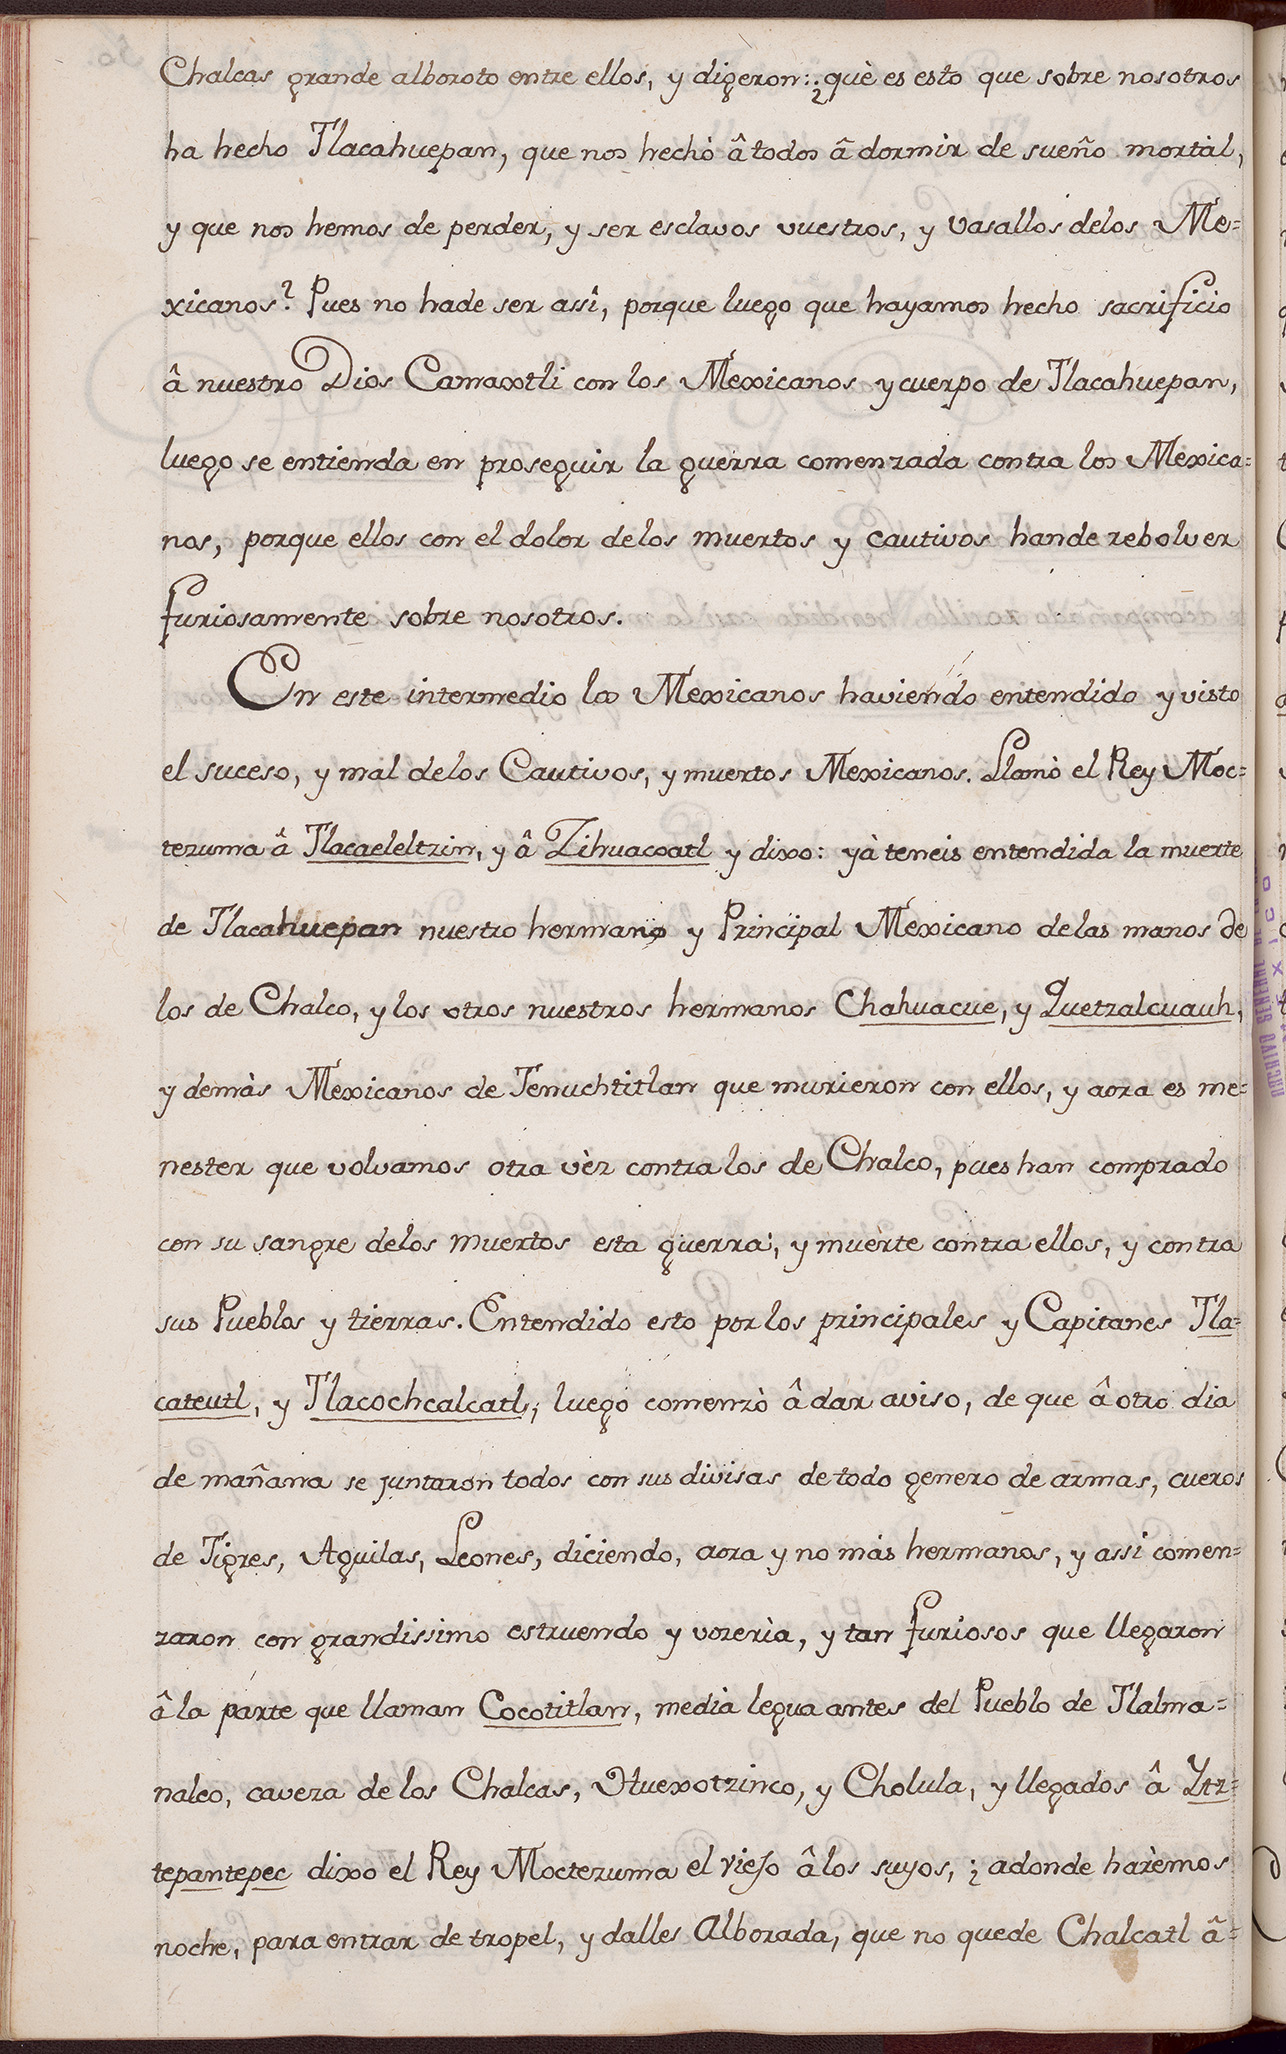 Chalcas grande alboroto entre ellos, y digeron: ¿què es esto que sobre nosotros
ha hecho Tlacahuepan, que nos hechò â todos â dormir de sueño mortal,
y que nos hemos de perder, y ser esclavos vuestros, y vasallos delos Me=
xicanos? Pues no hade ser assi, porque luego que hayamos hecho sacrificio
â nuestro Dios Camaxtli con los Mexicanos y cuerpo de Tlacahuepan,
luego se entienda en proseguir la guerra comenzada contra los Mexica=
nos, porque ellos con el dolor de los muertos y cautivos hande rebolver
furiosamente sobre nosotros.
En este intermedio los Mexicanos haviendo entendido y visto
el suceso, y mal delos Cautivos, y muertos Mexicanos. Llamò el Rey Moc=
tezuma â Tlacaeleltzin, y â Zihuacoatl y dixo: yà teneis entendida la muerte
de Tlacahuepan nuestro hermano y Principal Mexicano delas manos de
los de Chalco, y los otros nuestros hermanos Chahuacue, y Quetzalcuauh,
y demàs Mexicanos de Tenuchtitlan que murieron con ellos, y aora es me=
nester que volvamos otra vèz contra los de Chalco, pues han comprado
con su sangre delos muertos esta guerra, y muerte contra ellos, y contra
sus Pueblos y tierras. Entendido esto por los principales y Capitanes Tla=
cateutl, y Tlacochcalcatl, luego comenzò â dar aviso, de que â otro dia
de mañana se juntaron todos con sus divisas de todo genero de armas, cueros
de Tigres, Aguilas, Leones, diciendo, aora y no màs hermanos, y assi comen=
zaron con grandissimo estruendo y vozerìa, y tan furiosos que llegaron
â la parte que llaman Cocotitlan, media legua antes del Pueblo de Tlalma=
nalco, caveza de los Chalcas, Huexotzinco, y Cholula, y llegados â Ytz=
tepantepec dixo el Rey Moctezuma el viejo âlos suyos, ¿adonde harèmos
noche, para entrar de tropel, y dalles Alborada, que no quede Chalcatl â=